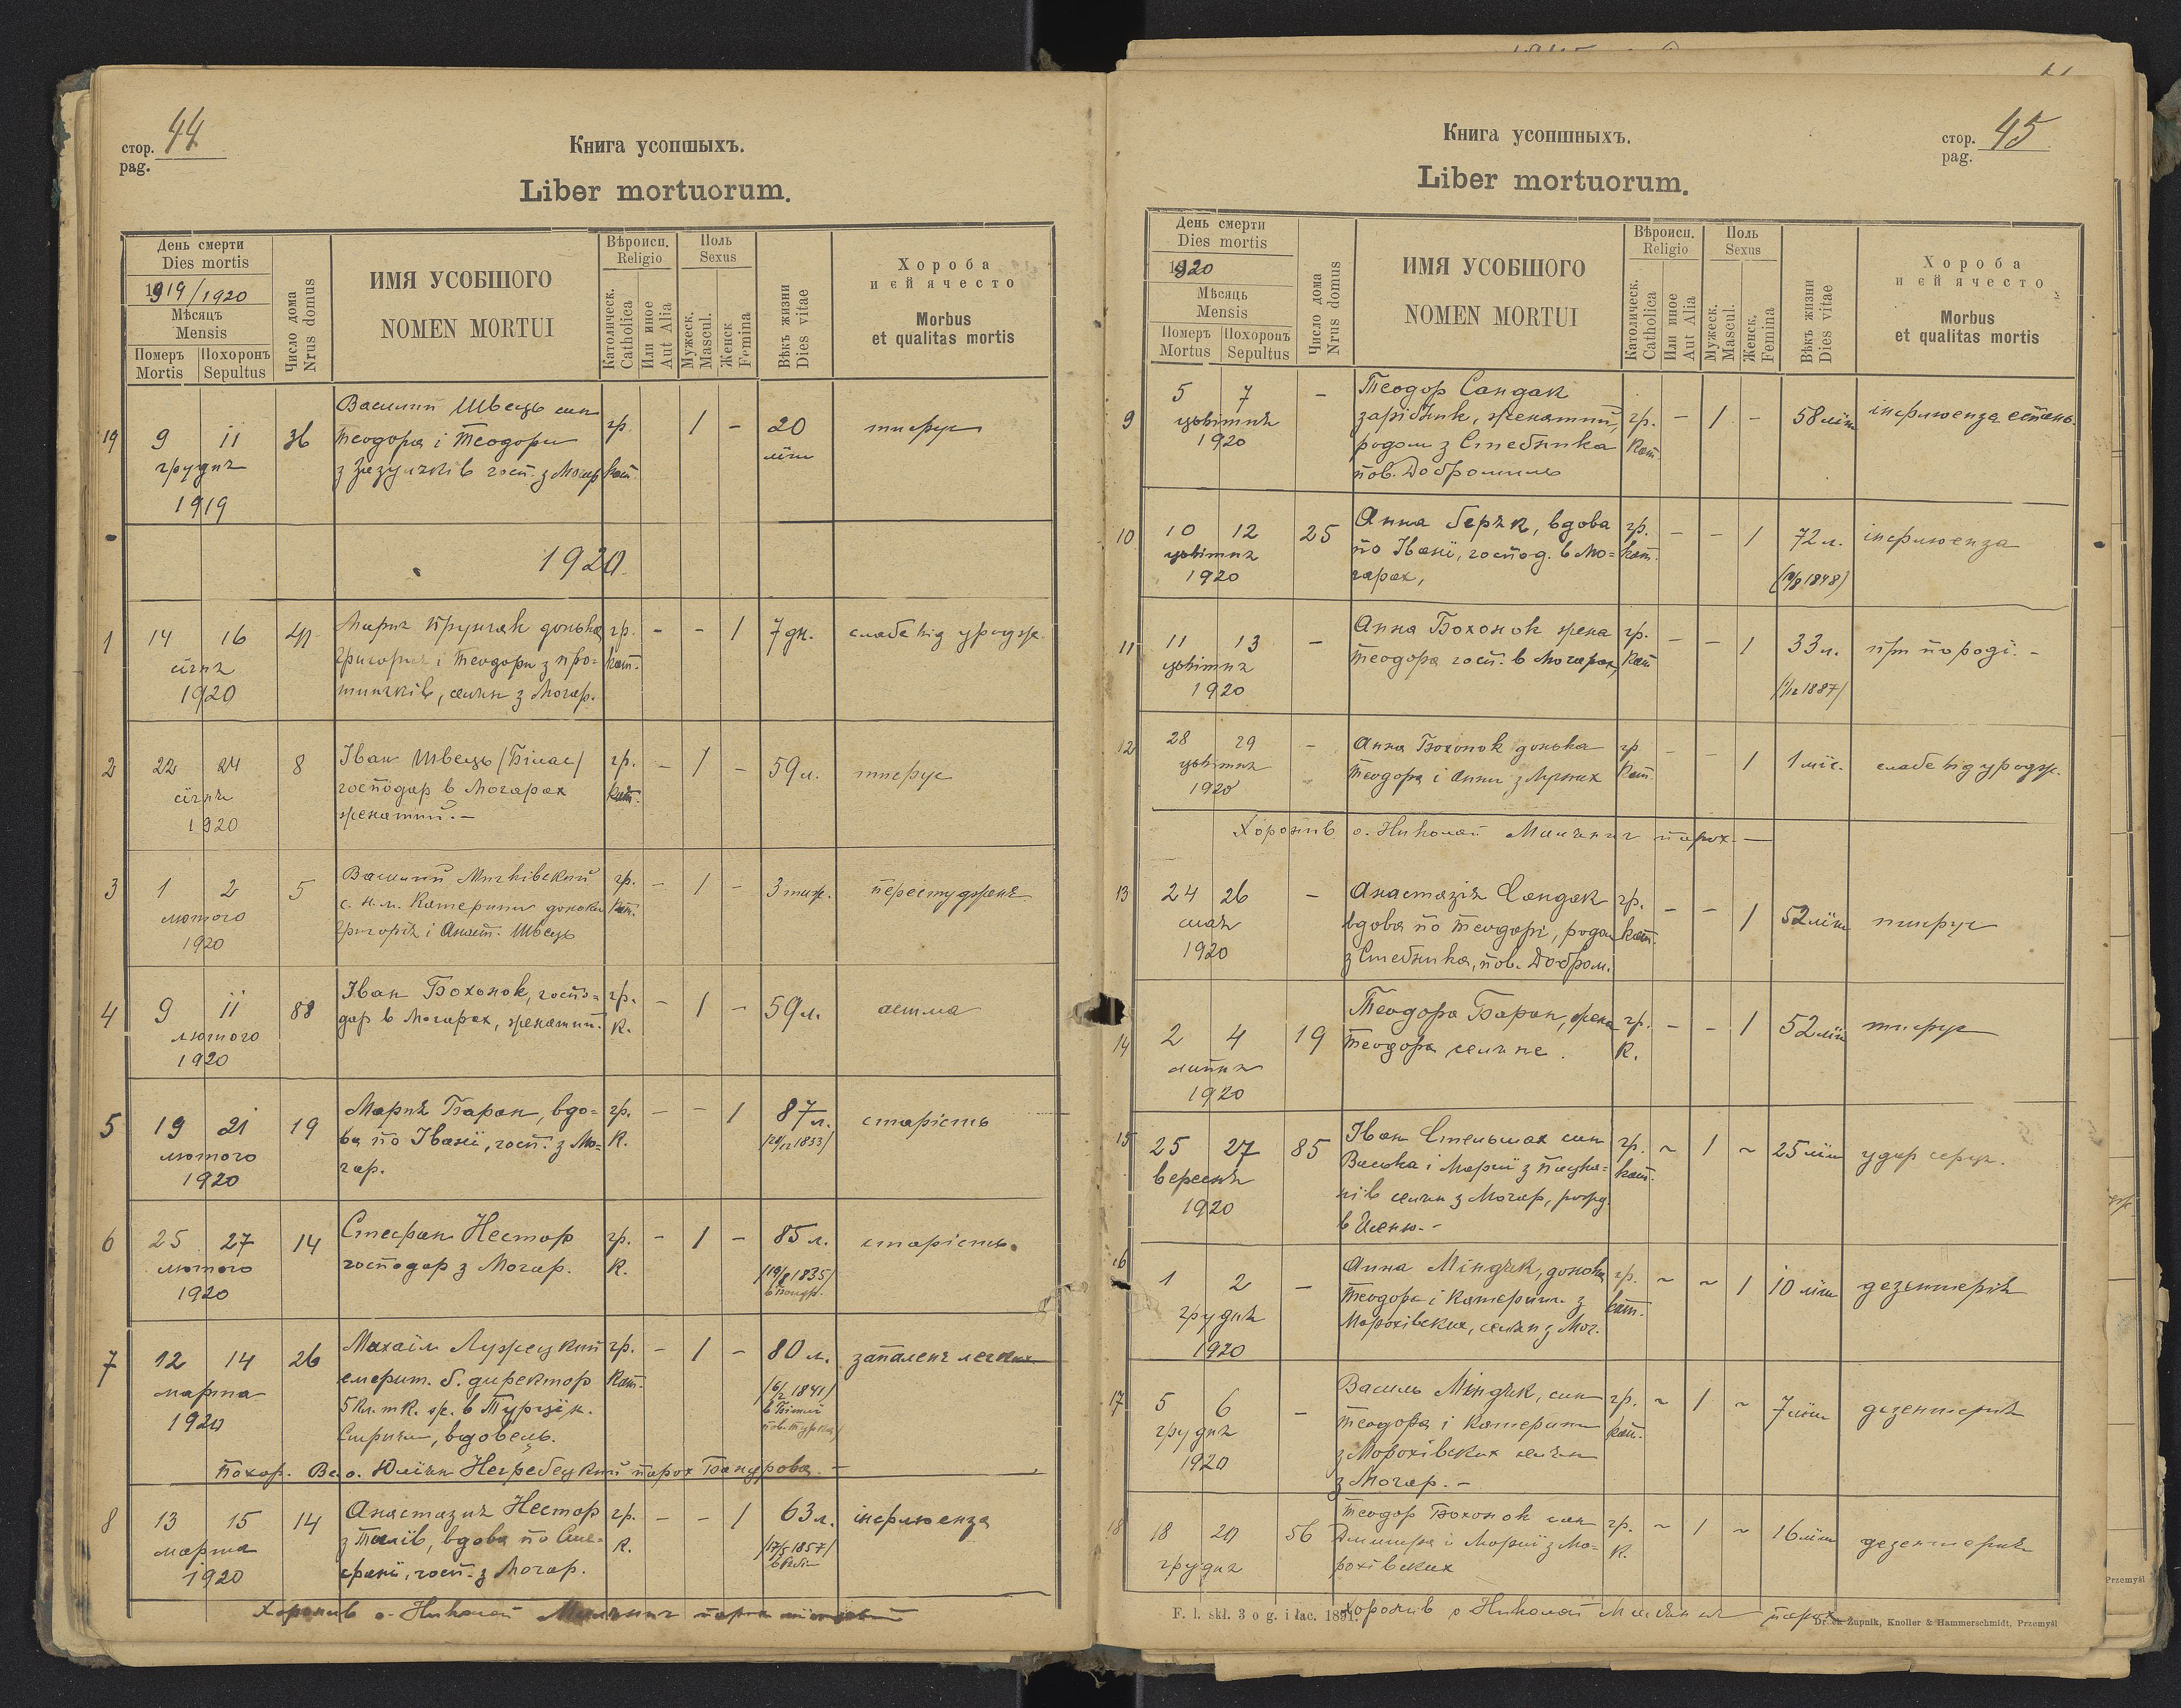 стор. 44
pag.
Книга усопшыхъ.
Liber mortuorum.
День смерти
Dies mortis
1919/1920
Мѣсяцъ
Mensis
Померъ
Mortis
Похоронъ
Sepultus
Число дома
Nrus domus
ИМЯ УСОБШОГО
NOMEN MORTUI
Вѣроисп.
Religio
Католическ.
Catholica
Или иное
Aut Alia
Поль
Sexus
Мужеск.
Mascul.
Женск
Femina
Вѣкъ жизни
Dies vitae
Хороба
и єй ячесто
Morbus
et qualitas mortis
19 9 11 36 Василий Швець син гр. 1 - 20 тифус
грудня Теодора і Теодори літ
1919 з кат.
1920.
1 14 16 Мария донька гр. - - 1 7 дн. слабе від уродж.
січня Григорія і Теодори з Про- кат.
1920 селян з Могар.
2 22 24 8 Іван Швець /Білас/ гр. - 1 - 59 л. тифус
січня господар в Могарах кат.
1920 женатий. -
3 1 2 5 Василий гр. - 1 - 3 тиж. перестуджене
лютого с. н. м. Катерини доньки кат.
1920 Григорія і Анаст. Швець
4 9 11 88 Іван Бохонок, госпо- гр. - 1 - 59 л. астма
лютого дар в Могарах, женатий. к.
1920
5 19 21 19 Мария Баран, вдо- гр. - - 1 87 л. старість
лютого ва по Івані, госп. з Мо- к.
1920 гар.
6 25 27 14 Стефан Нестор гр. - 1 - 85 л. старість.
лютого господар з Могар. к.
1920
7 12 14 26 Михаіл Лужецкий гр. - 1 - 80 л. запаленє легких
марта емерит. б. директор кат.
1920 5 кл. шк. ж. в Турці
вдовець.
Похор. Вс. о. Юліян Негребецкий парох
8 13 15 14 Анастазия Нестор гр. - - 1 63 л. інфлюенза
марта вдова по Сте- к. /17/5 1857/
1920 фані, госп. з Могар.
Хоронив о. Николай парох
стор. 45
pag.
Книга усопшныхъ.
Liber mortuorum.
День смерти
Dies mortis
1920
Мѣсяцъ
Mensis
Померъ
Mortus
Похоронъ
Sepultus
Число дома
Nrus domus
ИМЯ УСОБШОГО
NOMEN MORTUI
Вѣроисп.
Religio
Католическ.
Catholica
Или иное
Aut Alia
Поль
Sexus
Мужеск.
Mascul.
Женск.
Femina
Вѣкъ жизни
Dies vitae
Хороба
и єй ячесто
Morbus
et qualitas mortis
9 5 7 - Теодор Сандак
цьвітня зарібник, женатий, гр. - 1 - 58 літ інфлюенза
1920 родом з Стебника кат.
пов. Добромиль
10 10 12 25 Анна вдова гр. - - 1 72 л. інфлюенза
цьвітня по Івані, господ. в Мо- кат.
1920 гарах,
11 11 13 - Анна Бохонок жена гр. - - 1 33 л. при породі. -
цьвітня Теодора госп. в Могарах, кат
1920
12 28 29 - Анна Бохонок донька гр - - 1 1 міс. слабе від уродж.
цьвітня Теодора і Анни з кат.
1920
Хоронив о. Николай парох -
13 24 26 - Анастазія Сандак гр. - - 1 52 літ тифус
мая вдова по Теодорі, родом кат.
1920 з Стебника, пов. Добром.
14 2 4 19 Теодора Баран, жена гр. - - 1 52 літ тифус
липня Теодора селяне. к.
1920
15 25 27 85 Іван Стельмах син гр. ~ 1 ~ 25 літ удар серця.
вересня Васька і Марії з кат.
1920 селян з Могар,
16 1 2 - Анна Міндяк, донька гр. ~ ~ 1 10 літ дезентерія
грудня Теодора і Катерини з кат.
1920 Морохівских, селян з Мог.
17 5 6 - Василь Міндяк, син гр. ~ 1 ~ 7 літ дезентерія
грудня Теодора і Катерини кат.
1920 з Морохівских селян
з Могар. -
18 18 20 56 Теодор Бохонок син гр. ~ 1 ~ 16 літ дезентерия
грудня Дмитра і Марії з Мо- к.
рохівских
Хоронив о Николай парох
F. l. skł. 3 o g. i łac. 1891.
Druk Żupnik, Knoller & Hammerschmidt, Przemyśl
Przemyśl